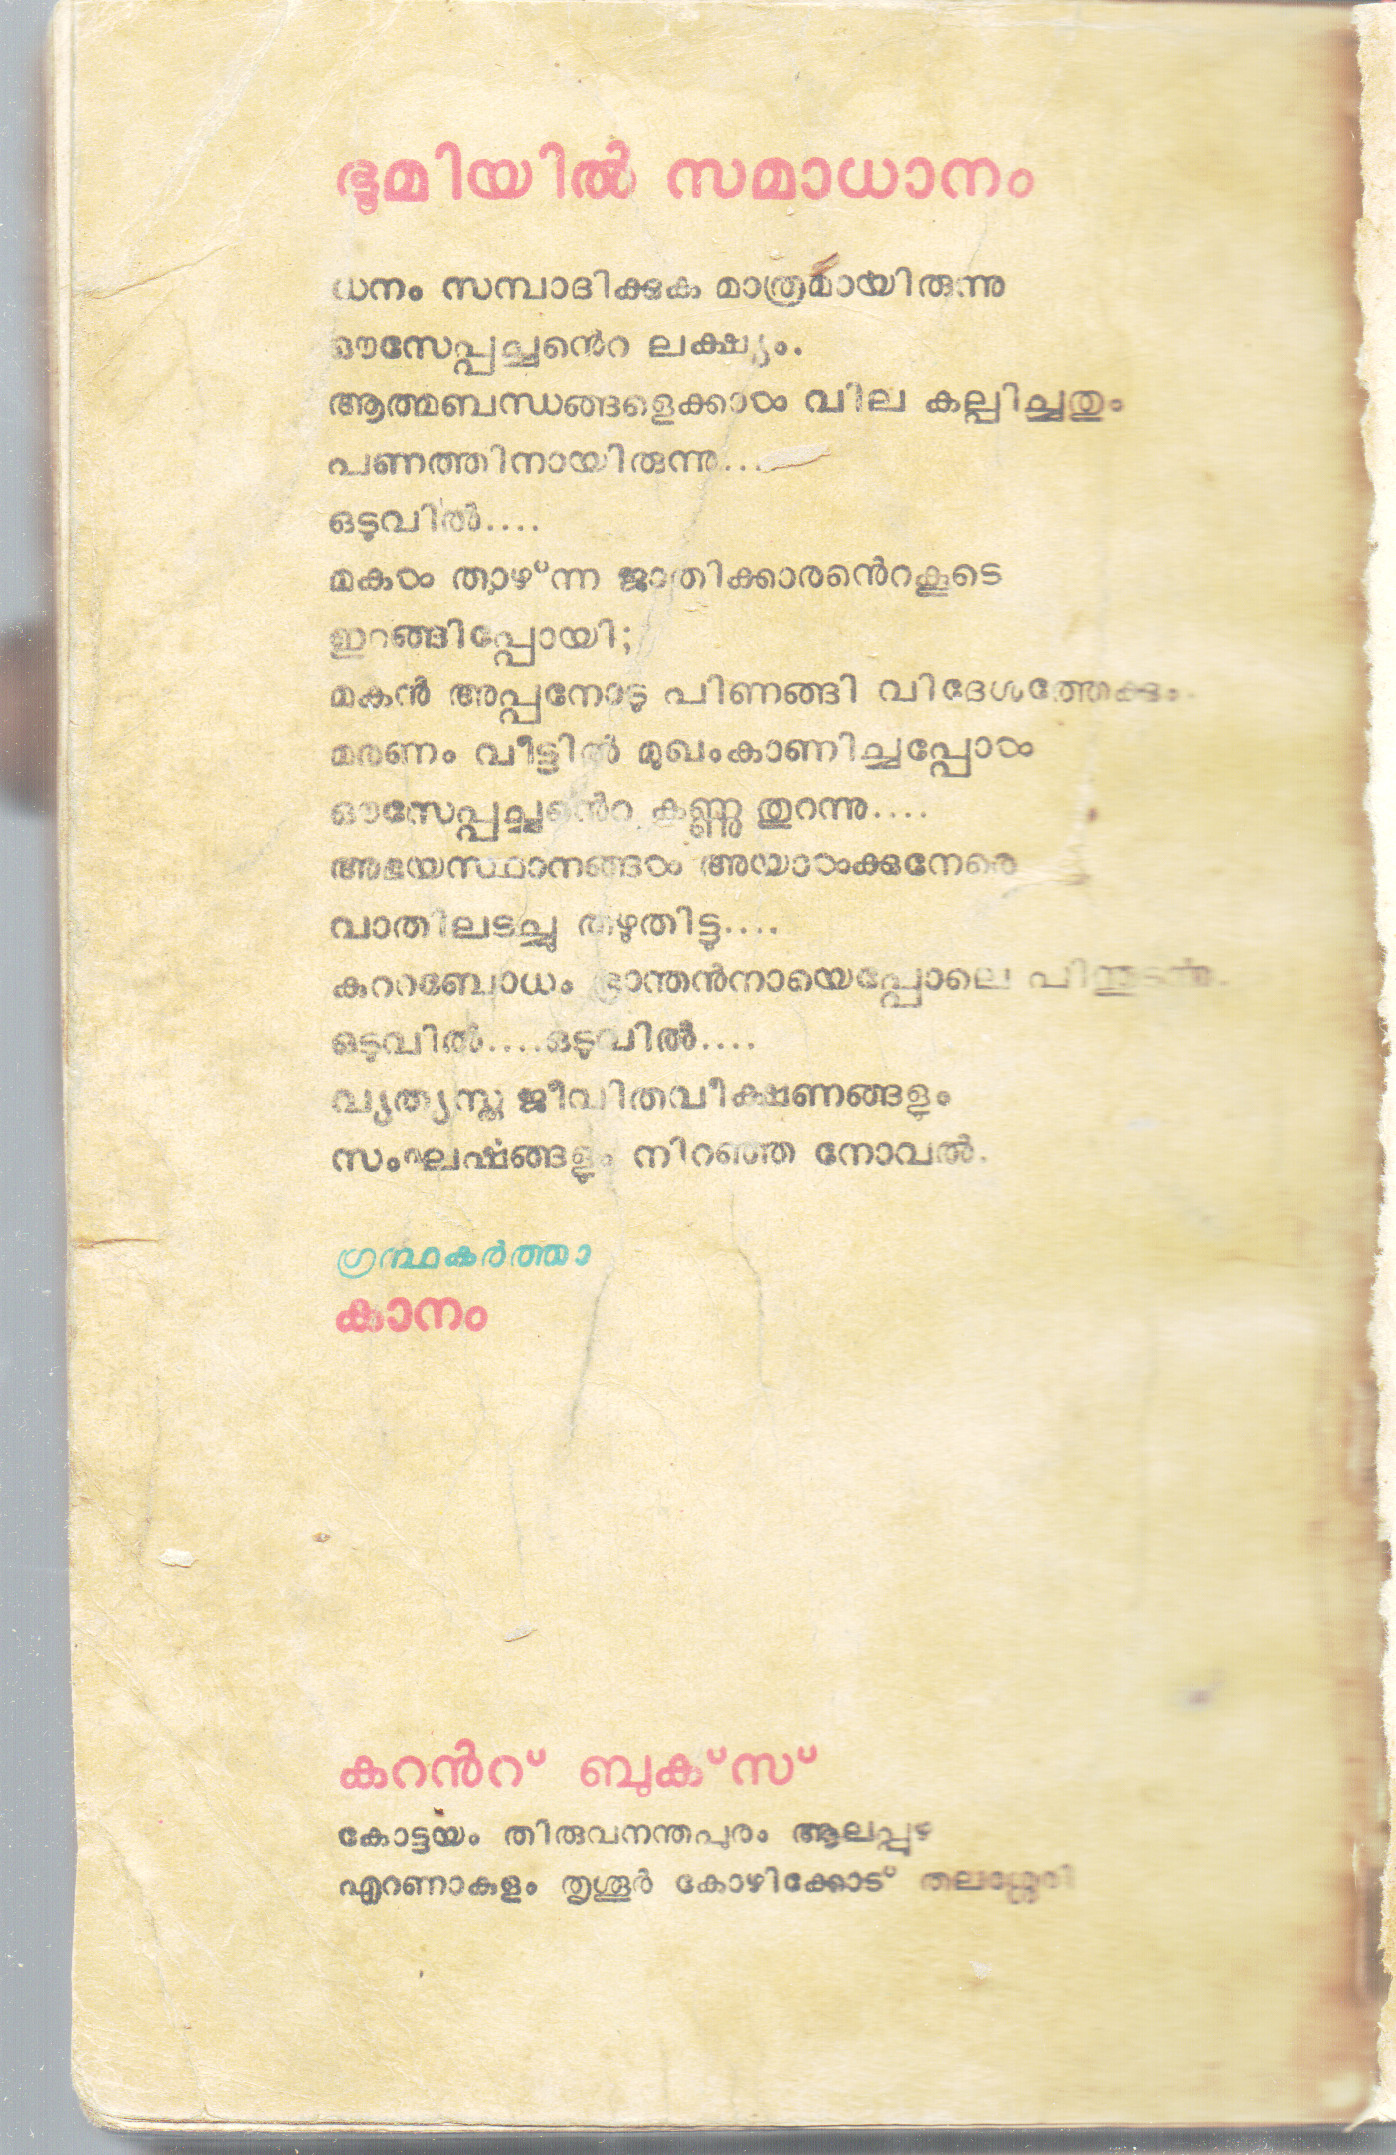 ഭൂമിയിൽ സമാധാനം
ധനം സമ്പാദിക്കുക മാത്രമായിരുന്നു
ഔസേപ്പച്ചൻെറ ലക്ഷ്യം.
ആത്മബന്ധങ്ങളെക്കാൾ വില കല്പിച്ചതും
പണത്തിനായിരുന്നു....
ഒടുവിൽ....
മകൾ താഴ്ന്ന ജാതിക്കാരൻെറകൂടെ
ഇറങ്ങിപ്പോയി;
മകൻ അപ്പനോടു പിണങ്ങി വിദേശത്തേക്കും.
മരണം വീട്ടിൽ മുഖംകാണിച്ചപ്പോൾ
ഔസേപ്പച്ചൻെറ കണ്ണു തുറന്നു....
അഭയസ്ഥാനങ്ങൾ അയാൾക്കുനേരെ
വാതിലടച്ചു തഴുതിട്ടു....
കുററബോധം ഭ്രാന്തൻനായെപ്പോലെ പിന്തുടർന്നു.
ഒടുവിൽ....ഒടുവിൽ....
വ്യത്യസ്ത ജീവിതവീക്ഷണങ്ങളും
സംഘർഷങ്ങളും നിറഞ്ഞ നോവൽ.
ഗ്രന്ഥകർത്താ
കാനം
കറൻറ് ബുക്സ്
കോട്ടയം തിരുവനന്തപുരം ആലപ്പുഴ
എറണാകുളം തൃശൂർ കോഴിക്കോട് തലശ്ശേരി